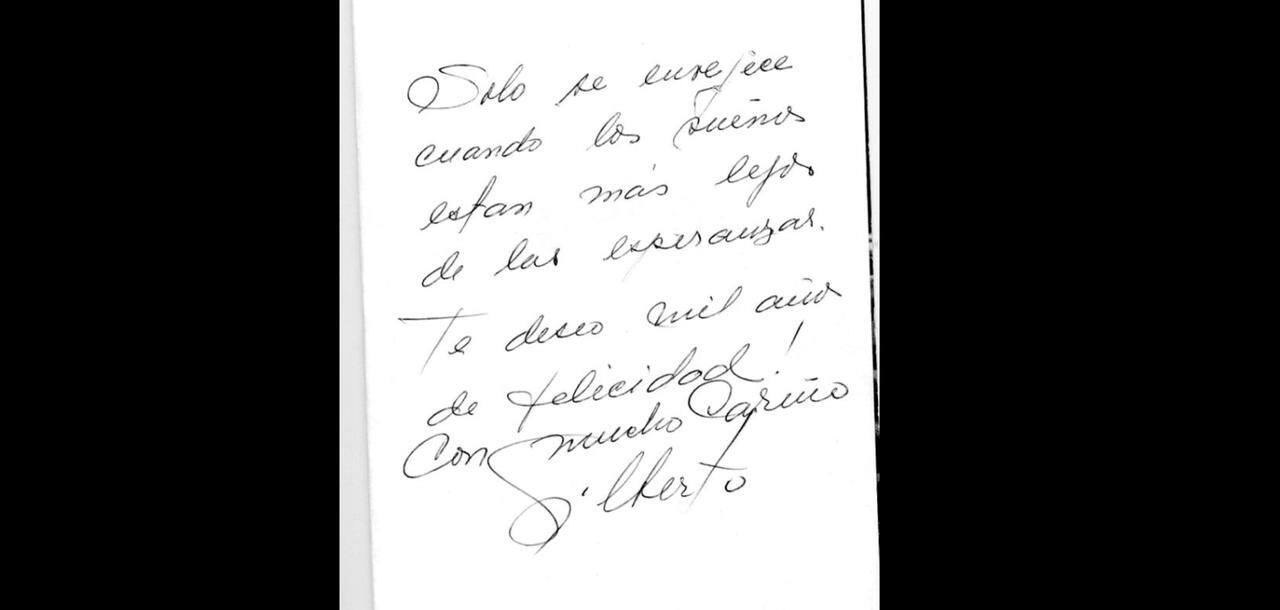 Solo se envejece
cuando los sueños
estan más lejos
de las esperanzas.
Te deseo mil años
de felicidad!
Con mucho Cariño
Gilberto